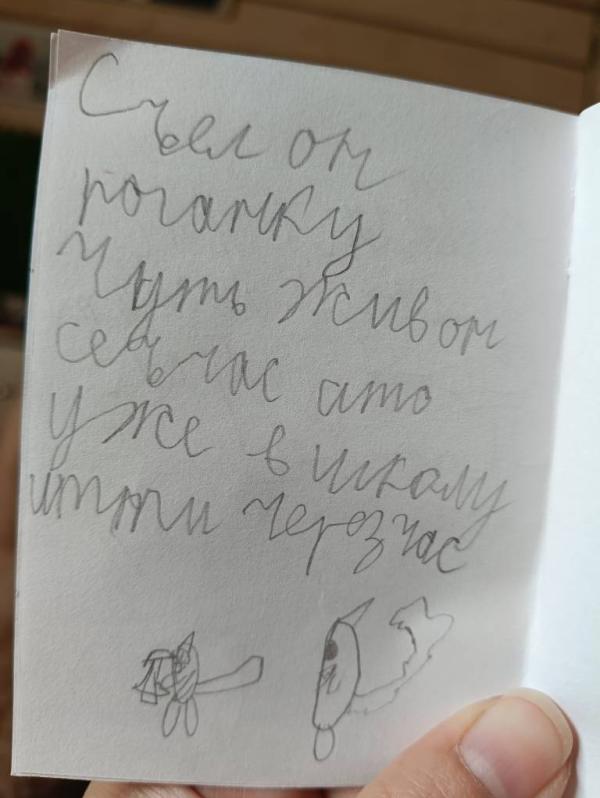 Съел он
поганку
Чуть живот
сейчас ато
уже в школу
итти черезчас